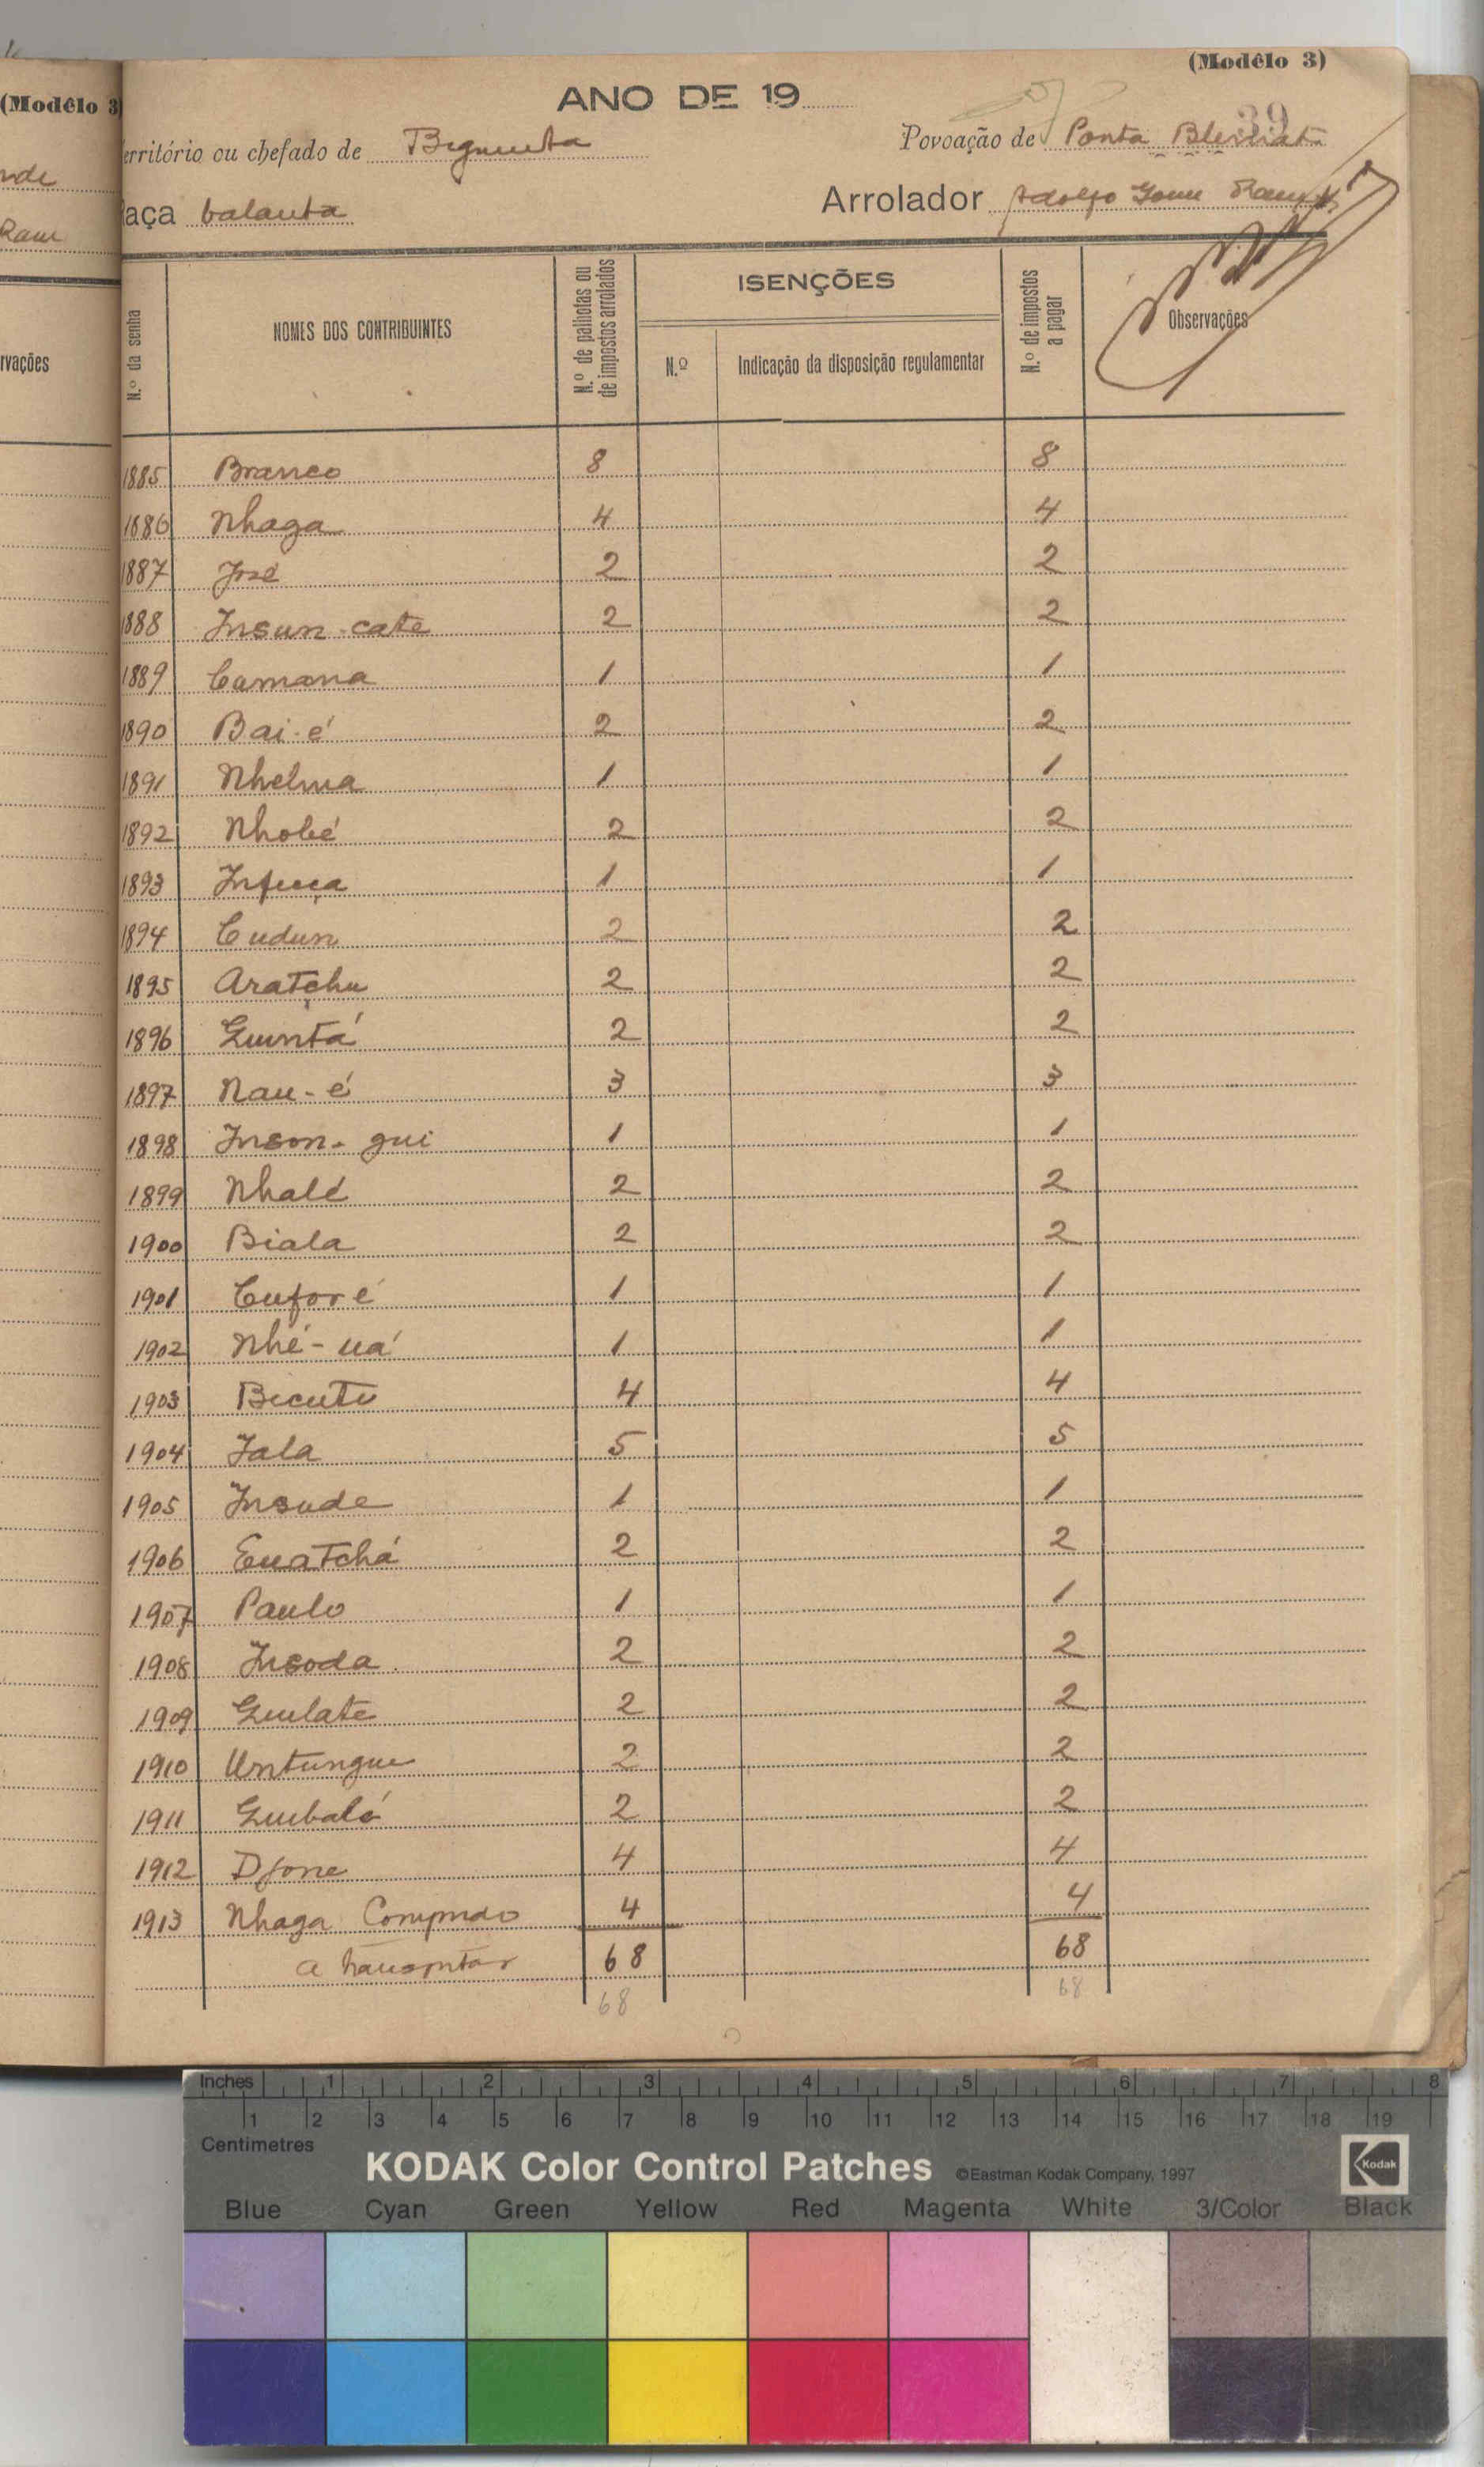 (Modêlo 3)
(Modêlo 3
ANO DE 19
39
erritório ou chefado de
Povoação de Ponta
aça balanta
Arrolador Adolfo Gomes
rvações
N.º da senha
NOMES DOS CONTRIBUINTES
N.º de palhotas ou de impostos arrolados
ISENÇÕES
N.º
Indicação da disposição regulamentar
N.º de impostos a pagar
Observações
1885 Branco 8 8
1886 Nhaga 4 4
1887 José 2 2
1888 Insun-cate 2 2
1889 Camana 1 1
1890 Bai-é 2 2
1891 Nhelma 1 1
1892 Nhobé 2 2
1893 Infuca 1 1
1894 Cudun 2 2
1895 Aratchu 2 2
1896 Quintá 2 2
1897 Nau-é 3 3
1898 Inson-gui 1 1
1899 Nhalé 2 2
1900 Biala 2 2
1901 Cuforé 1 1
1902 Nhé-uá 1 1
1903 Bicuti 4 4
1904 Jala 5 5
1905 Insude 1 1
1906 Euatchá 2 2
1907 Paulo 1 1
1908 Insoda 2 2
1909 Quilate 2 2
1910 Untungue 2 2
1911 Quibaló 2 2
1912 Djone 4 4
1913 Nhaga Comprido 4 4
a transportar 68 68
68 68
Inches 1 2 3 4 5 6 7 8
1 2 3 4 5 6 7 8 9 10 11 12 13 14 15 16 17 18 19
Centimetres
KODAK Color Control Patches ©Eastman Kodak Company, 1997 Kodak
Blue Cyan Green Yellow Red Magenta White 3/Color Black